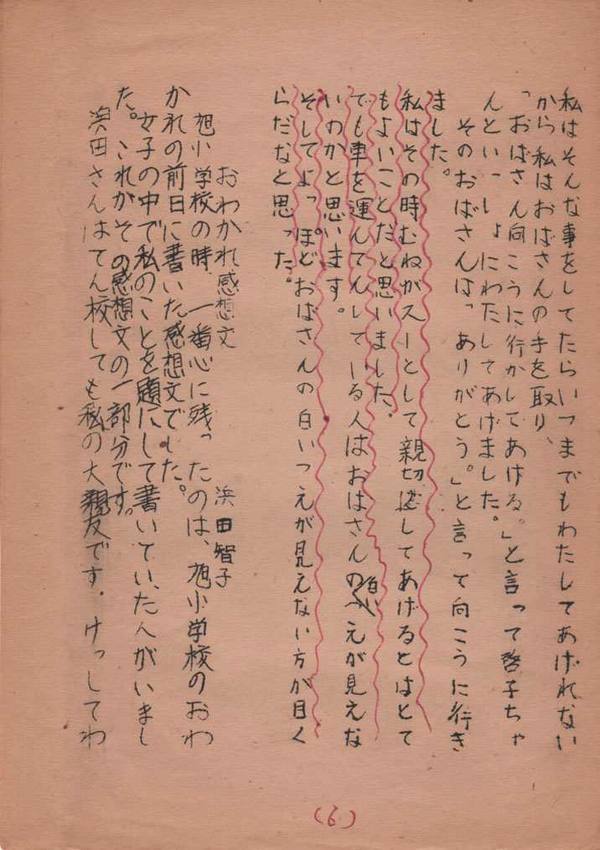 私はそんな事をしてたらいつまでもわたしてあげれない
から私はおばさんの手を取り、
「おばさん向こうに行かしてあげる。」と言って啓子ちゃ
んといっしょにわたしてあげました。
そのおばさんは、ありがとう。」と言って向こうに行き
ました。
私はその時むねがスーとして親切にしてあげるとはとて
もよいことだと思いました。
でも車を運んてんしている人はおばさんの白いつえが見えな
いのかと思います。
そしてよっぽどおばさんの白いつえが見えない方が目く
らだなと思った。
おわかれ感想文
浜田智子
旭小学校の時、一番心に残ったのは、旭小学校のおわ
かれの前日に書いた感想文でした。
女子の中で私のことを題にして書いていた人がいまし
た。これがその感想文の一部分です。
浜田さんはてん校しても私の大親友です。けっしてわ
(6)